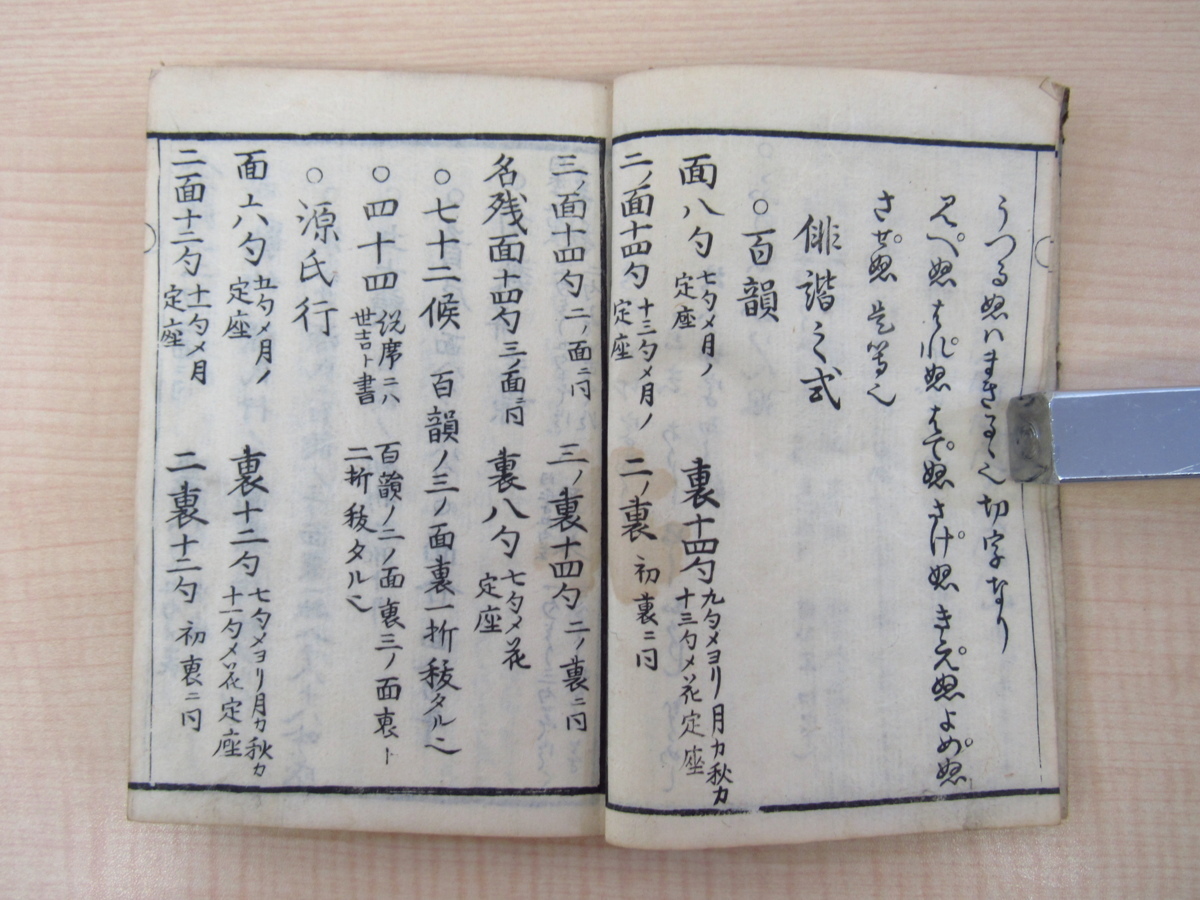 うつるぬハまきるゝ也切字なり
見へぬ されぬ はてぬ さけぬ きえぬ よめぬ
させぬ 是等也
俳諧之式
○百韻
面八勺 七勺メ月ノ定座 裏十四勺 九勺メヨリ月カ秋カ 十三勺メ花定座
二ノ面十四勺 十三勺メ月ノ定座 二ノ裏 初裏ニ同
三ノ面十四勺 二ノ面ニ同 三ノ裏十四勺 二ノ裏ニ同
名残面十四勺 三ノ面ニ同 裏八勺 七勺メ花定座
○七十二候 百韻ノ三ノ面裏一折䅈タル也
○四十四 祝席ニハ世吉ト書 百韻ノ二ノ面裏三ノ面裏ト二折䅈タル也
○源氏行
面六勺 五勺メ月ノ定座 裏十二勺 七勺メヨリ月カ秋カ 十一勺メ花定座
二面十二勺 十一勺メ月定座 二裏十二勺 初裏ニ同